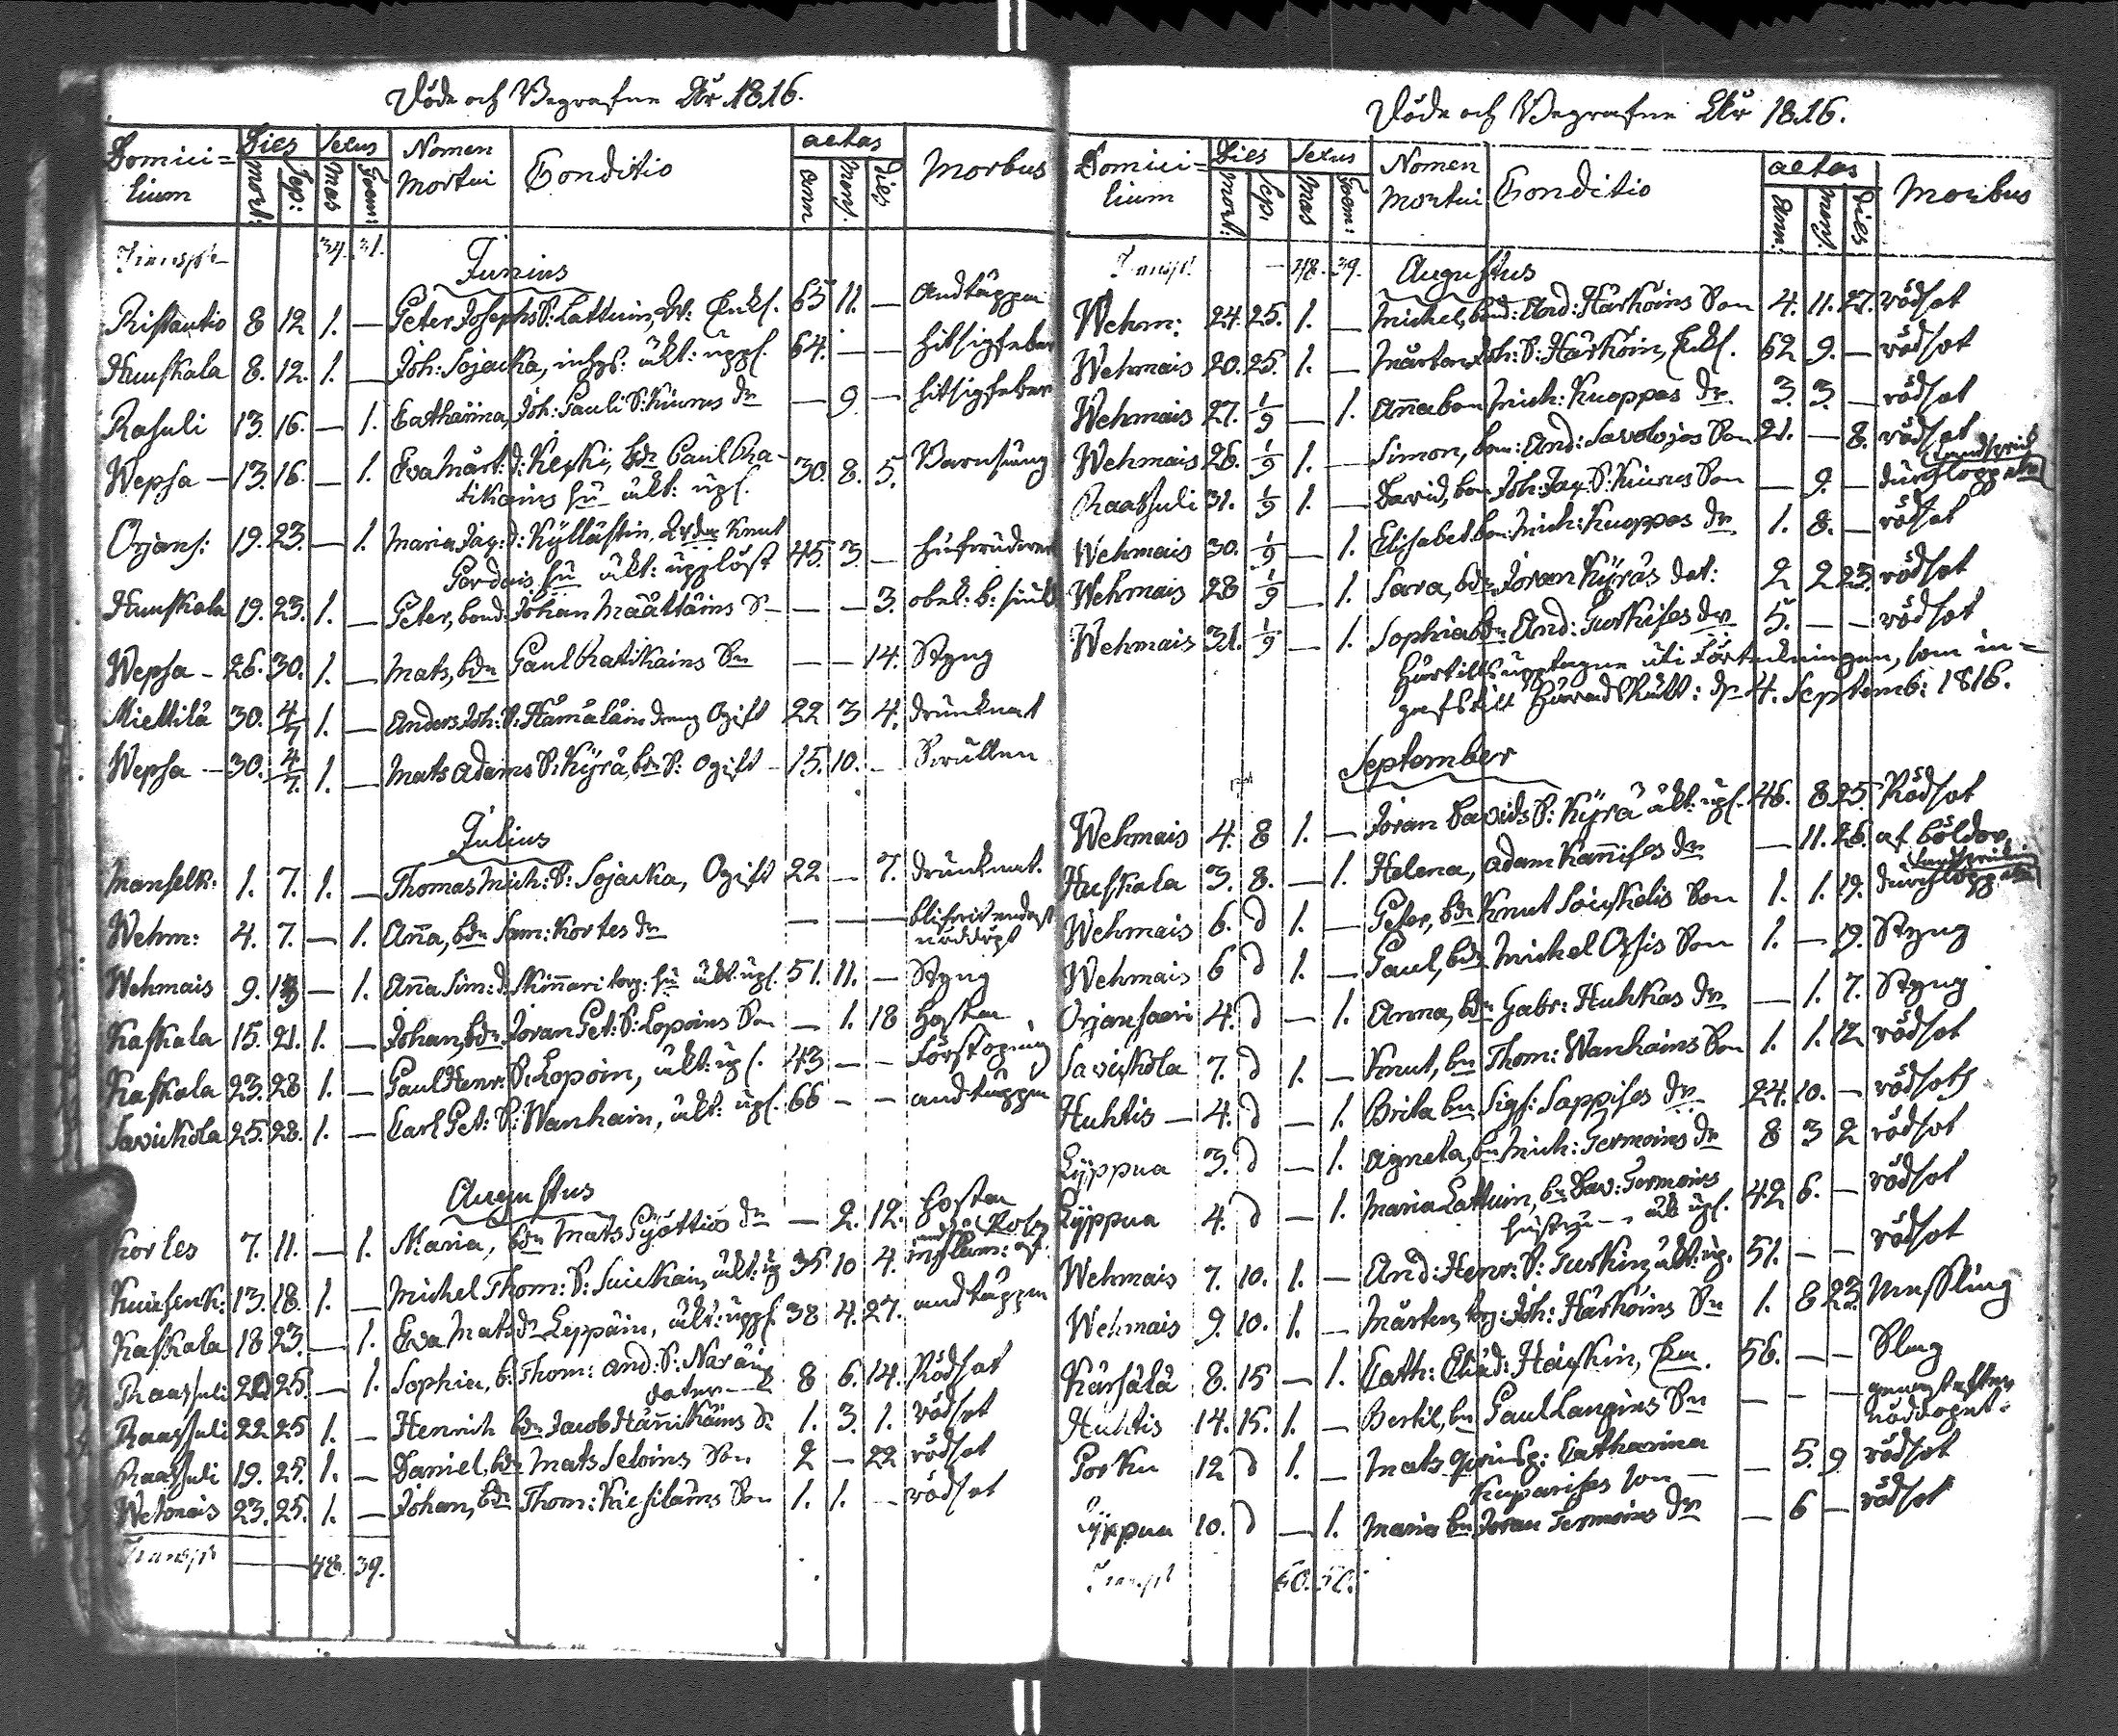 Döde och Begrafne År 1816.
Domici= Dies Sexus Nomen Conditio aetas Morbus
lium mort: Sep: Mas Foem: Mortui ann mens. Dies
Transpt 34. 31. Junius
Ristautio 8 12 1. — Peter Josephs S: Lattuin, Enkl. 65 11. — Andtäppa
Humskala 8. 12. 1. — Joh: Sojacka, inhys: äkt: uppl. 64. — — Hitsigfeber
Rasuli 13. 16. — 1. Catharina, Joh: Pauli S: Kiurus dr — 9 — Hitsigfeber
Wepsa — 13. 16. — 1. Eva Märt: d: Keski, bdn Paul Ra-
tikains hu äkt: upl. 30. 8. 5. Barnsäng
Orjans: 19. 23. — 1. Maria Jag: d: Kyllästin, Knut
Pordais hu äkt: upplöst 45. 3. —
Humskala 19. 23. 1. — Peter, bond: Johan Määttäins S — — 3. obek: b: siukd
Wepsa - 26. 30. 1. — Mats, bdn Paul Ratikains Sn — — 14. Styng
Miettilä 30. 4/7 1. — Anders Joh: S: Hämäläin dreng Ogift 22 3 4. drunknat
Wepsa — 30. 4/7. 1. — Mats Adams S: Kyrä, bdn S: Ogift - 15. 10. —
Julius
Manselk: 1. 7. 1. — Thomas Mich: S: Sojacka, Ogift 22 — 7. drunknat.
Wehm: 4. 7. — 1. Anna, bdn Sam: Kortes dr — — —
nöddöpt
Wehmais 9. — 1. Anna Sim: d: Skinnari torp: hu äkt: upl. 51. 11. — Styng
Kaskala 15. 21. 1. — Johan, bdn Joran Pet: S: Lopoins Son — 1. 18 Hostan
Kaskala 23. 28 1. — Paul Henr: S: Lopoin, äkt: upl. 43 — — Förstoping
Savickola 25. 28. 1. — Carl Pet: S: Wanhain, äkt: upl. 66 - - andtäppa
Augustus
Kortes 7. 11. — 1. Maria, bdn Mats Pyöttiös dr — 2. 12. Hostan
Kuisenk: 13. 18. 1. — Michel Thom: S: Suickain, äkt: up 35. 10 4. inflam:
Kaskala 18 23. — 1. Eva Mats dr Leppäin, äkt: uppl. 38 4. 27. andtäppa
Raassuli 25. — 1. Sophia, b: Thom: And: S: Naräin
dater 8 6. 14. Rödsot
Raassuli 22 25 1. — Henrich bdn Jacob Hännikäins S: 1. 3. 1. rödsot
Raassuli 19. 25. 1. — Daniel, bdn Mats Seloins Son 2 — 22 rödsot
Wehmais 23. 25. 1. — Johan, bdn Thom: Kiesiläins Son 1. 1. — rödsot
Transpt — — 48. 39.
Döde och Begrafne År 1816.
Domici= Dies Sexus Nomen Conditio aetas Moribus
lium mort: Sep: Mas Foem: Mortui Ann: mens. Dies
Transpt — 48. 39. Augustus
Wehm: 24. 25. 1. — Michel, bond: And: Härköins Son 4. 11. 27. rödsot
Wehmais 20. 25. 1. — Mårten Joh: S: Härköin, Enkl. 62 9. — rödsot
Wehmais 27. 1/9 — 1. Anna bon Mich: Kuoppas dr 3. 3. — rödsot
Wehmais 26. 1/9 1. — Simon, bon: And: Savolojas Son 21. — 8. rödsot
Raatsuli 31. 1/9 1. — David, bon Joh: Jag: S: Kiurus Son — 9. — durchloppet
Wehmais 30. 1/9 — 1. Elisabet bon Mich: Kuoppas dr 1. 8. — rödsot
Wehmais 28 1/9 — 1. Sara, bdn Joran Kyräs dot: 2 2 23. rödsot
Wehmais 31. 1/9 — 1. Sophia bdn And: Turkises dr 5. — — rödsot
Härtills upptagne uti Förteckningen, som in=
gafs till Häradsrätt: d: 4. Septemb: 1816.
September
Wehmais 4. 8 1. — Joran Davids S: Kyrä äkt: upl. 46. 8 25. Rödsot
Huskala 3. 8. — 1. Helena, Adam Kannises dr — 11. 26. af böldor
Wehmais 6. d 1. — Peter, bdn Knut Söickelis Son 1. 1. 19. durchloppet
Wehmais 6 d 1. — Paul, bdn Michel Orsis Son 1. — 19. Styng
Orjansaari 4. d — 1. Anna, bdn Gabr: Huhkas dr — 1. 7. Styng
Savickola 7. d 1. — Knut, bn Thom: Wanhains Son 1. 1. 12 rödsot
Huhtis — 4. d — 1. Brita bn Sigf: Sappises dr 24. 10. — rödsot
Lyppua 3. d — 1. Agneta, bn Mich: Termoins dr 8 3 2 rödsot
Lyppua 4. d — 1. Maria Lattuin, bn Dav: Termoins
hustru — äkt upl. 42 6. — rödsot
Wehmais 7. 10. 1. — And: Henr: S: Turkin, äkt: up. 51. — — rödsot
Wehmais 9. 10. 1. — Mårten, torp: Joh: Härköins Sn 1. 8 23. Messling
Kärsälä 8. 15 — 1. Cath: Eliæd: Häiskin, Enk 56. — — Slag
Huhtis 14. 15. 1. — Bertil, bn Paul Langins Sn — — —
nöddöpt.
Porkn 12 d 1. — Mats qvinsp: Catharina
Kuparises Son — — 5. 9 rödsot
Lyppua 10. d — 1. Maria bn Joran Termoins dr — 6 — rödsot
Transpt 60. 50.